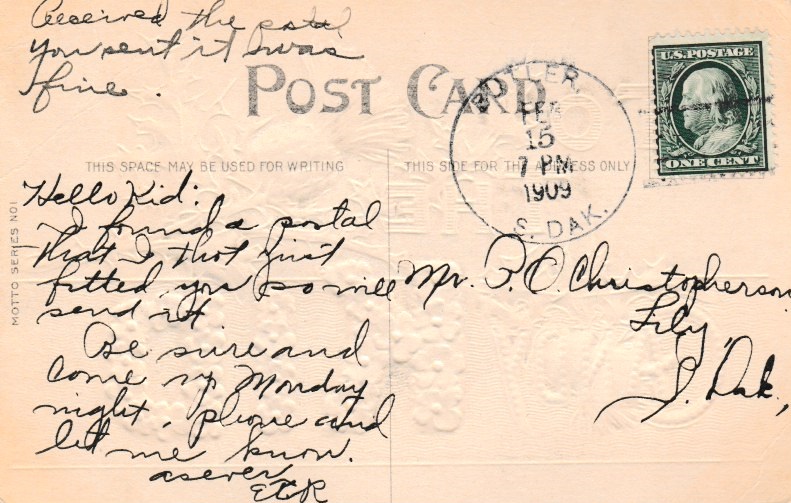 Received the postal
you sent it was
fine.
POST CARD
U.S. POSTAGE
ONE CENT
FEB
15
7 PM
1909
S. DAK.
THIS SPACE MAY BE USED FOR WRITING
THIS SIDE FOR THE ADDRESS ONLY
MOTTO SERIES NO1
Hello Kid:
I found a postal
that I thot just
fitted you so will
send it
Be sure and
come up Monday
night, phone and
let me know.
as ever
Mr. P. O. Christopherson
Lily,
S. Dak.,